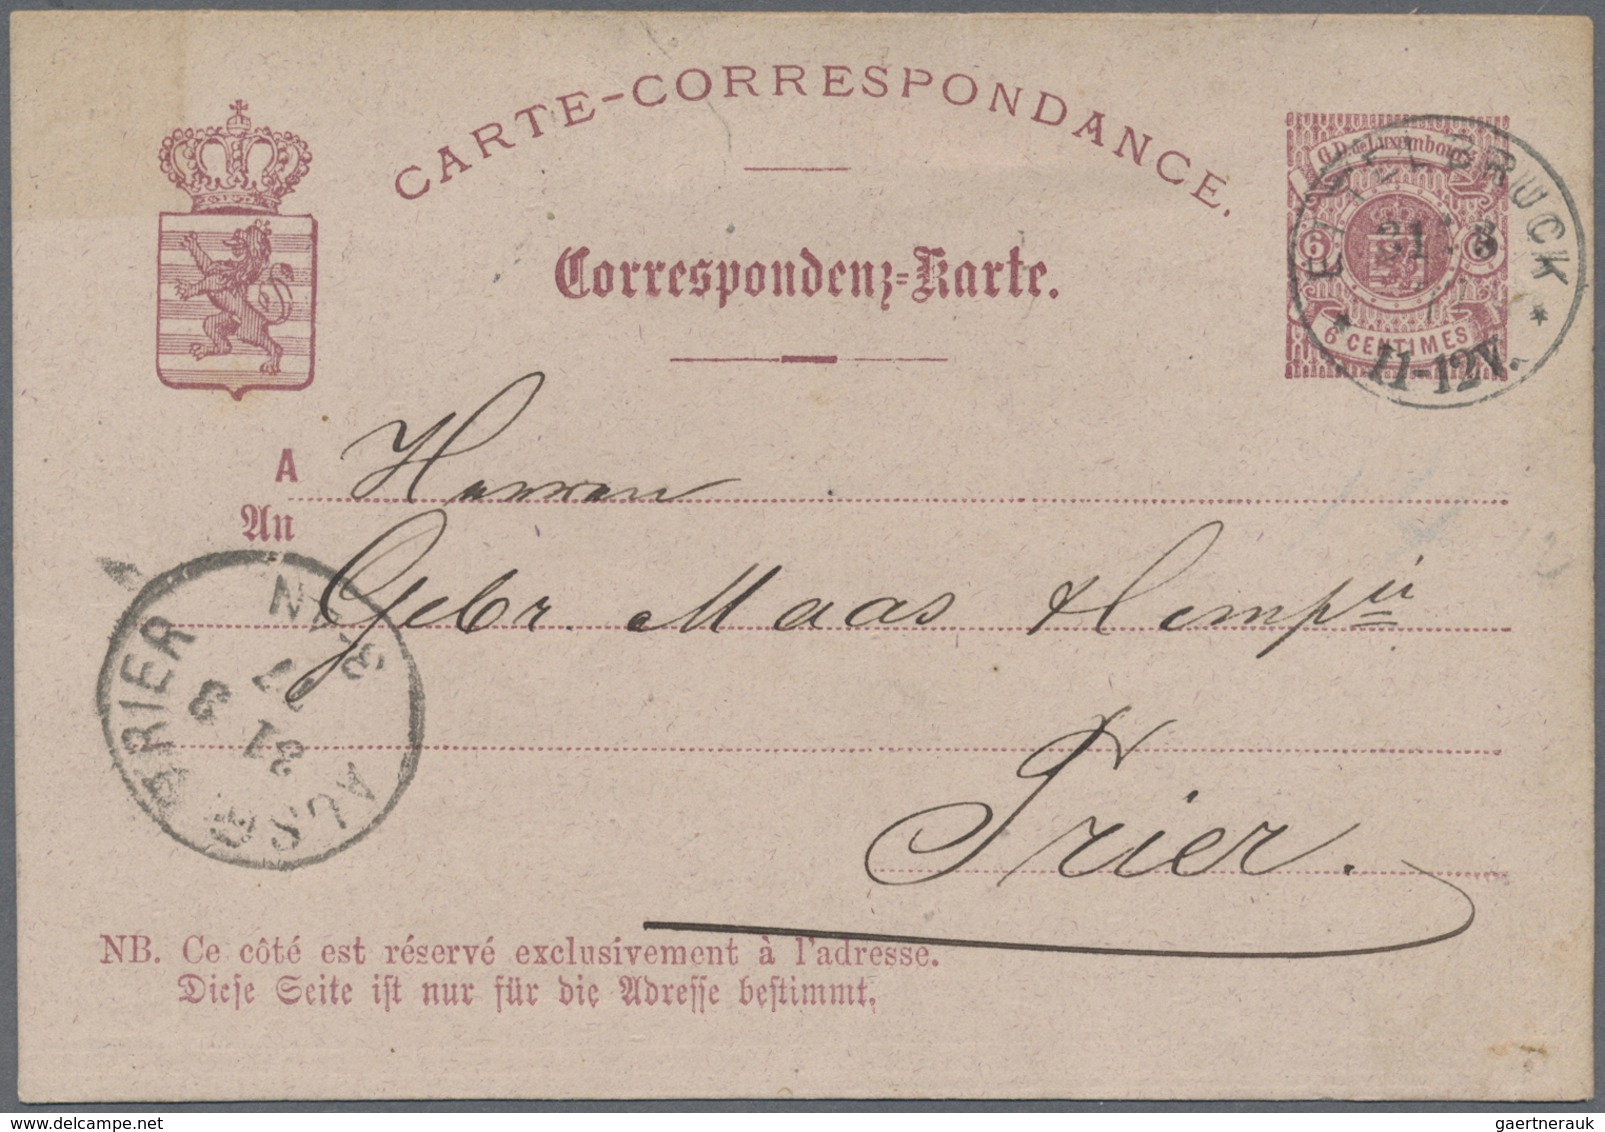 CARTE-CORRESPONDANCE.
Correspondenz-Karte.
G.D. de Luxembourg
6 6
6 CENTIMES
ETTELBRUCK
31 3
11-12V.
A Herren
An
Gebr. Maas & Compii
Trier.
TRIER
31 3
77
NB. Ce côté est réservé exclusivement à l'adresse.
Diese Seite ist nur für die Adresse bestimmt.
gaertnerauk